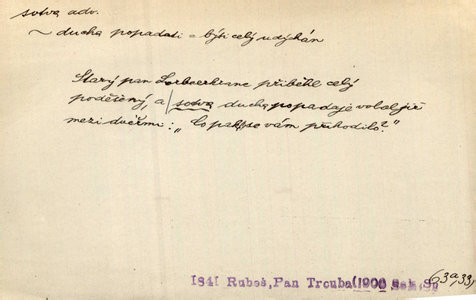 sotva adv.
~ ducha popadati = býti celý udýchán
Starý pan Lerbaerkrne přiběhl celý
poděšený, a sotva ducha popadaje volal již
mezi dveřmi: „Co pak se vám přihodilo?"
1841 Rubeš, Pan Trouba (1906
63a,33,